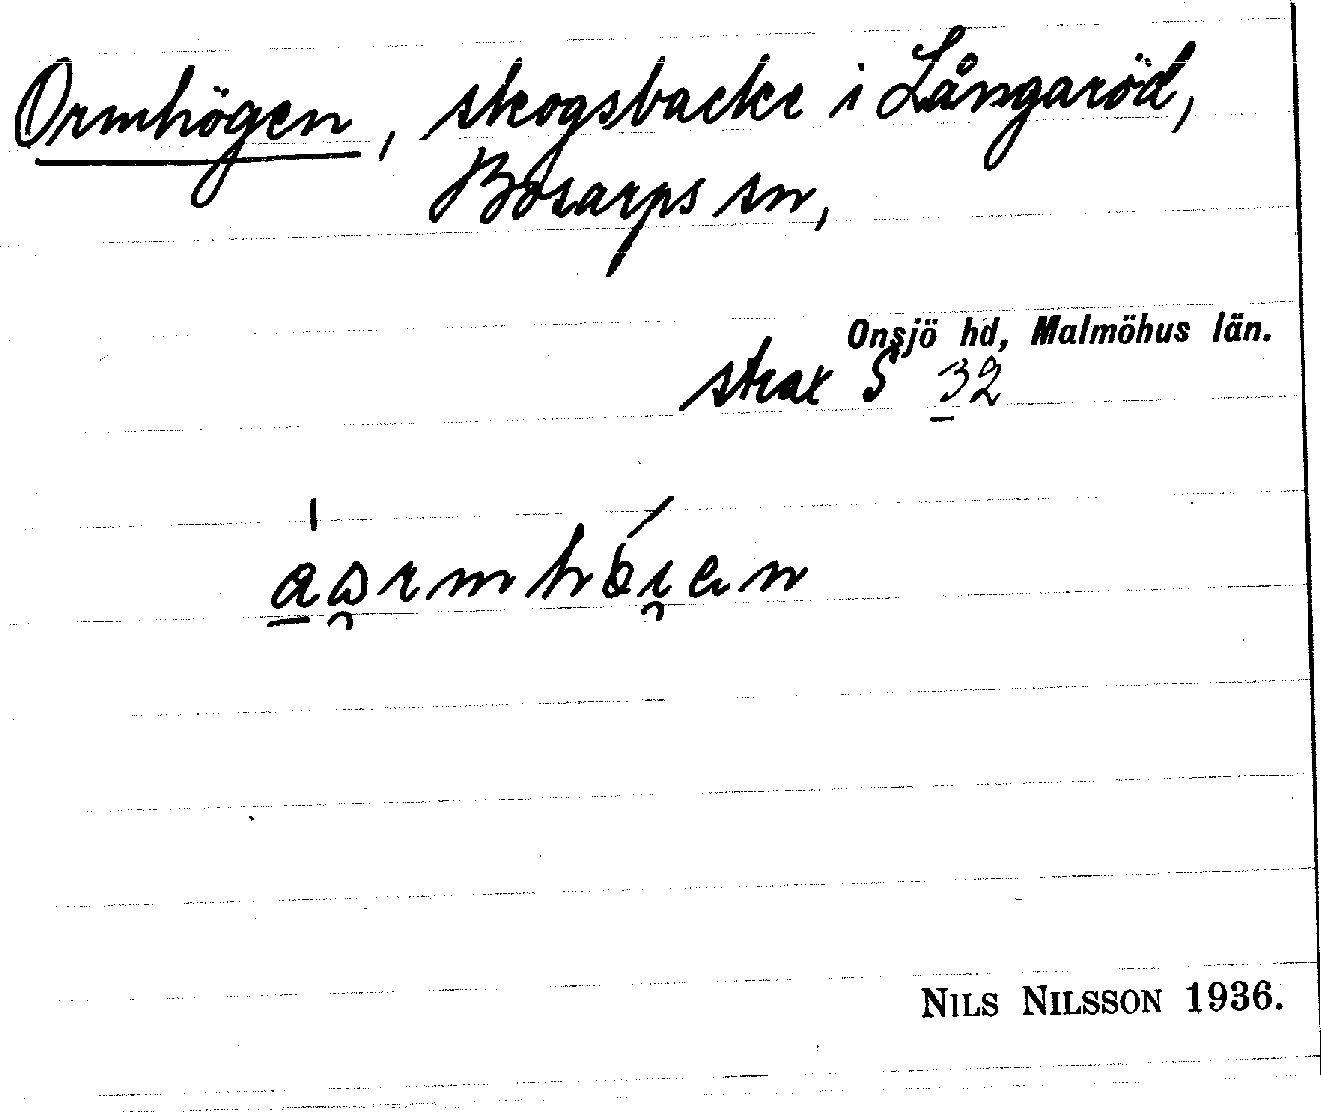 Ormhögen, skogsbacke i Långaröd,
Bosarps sn,
Onsjö hd, Malmöhus län.
strax S 32
NILS NILSSON 1936.